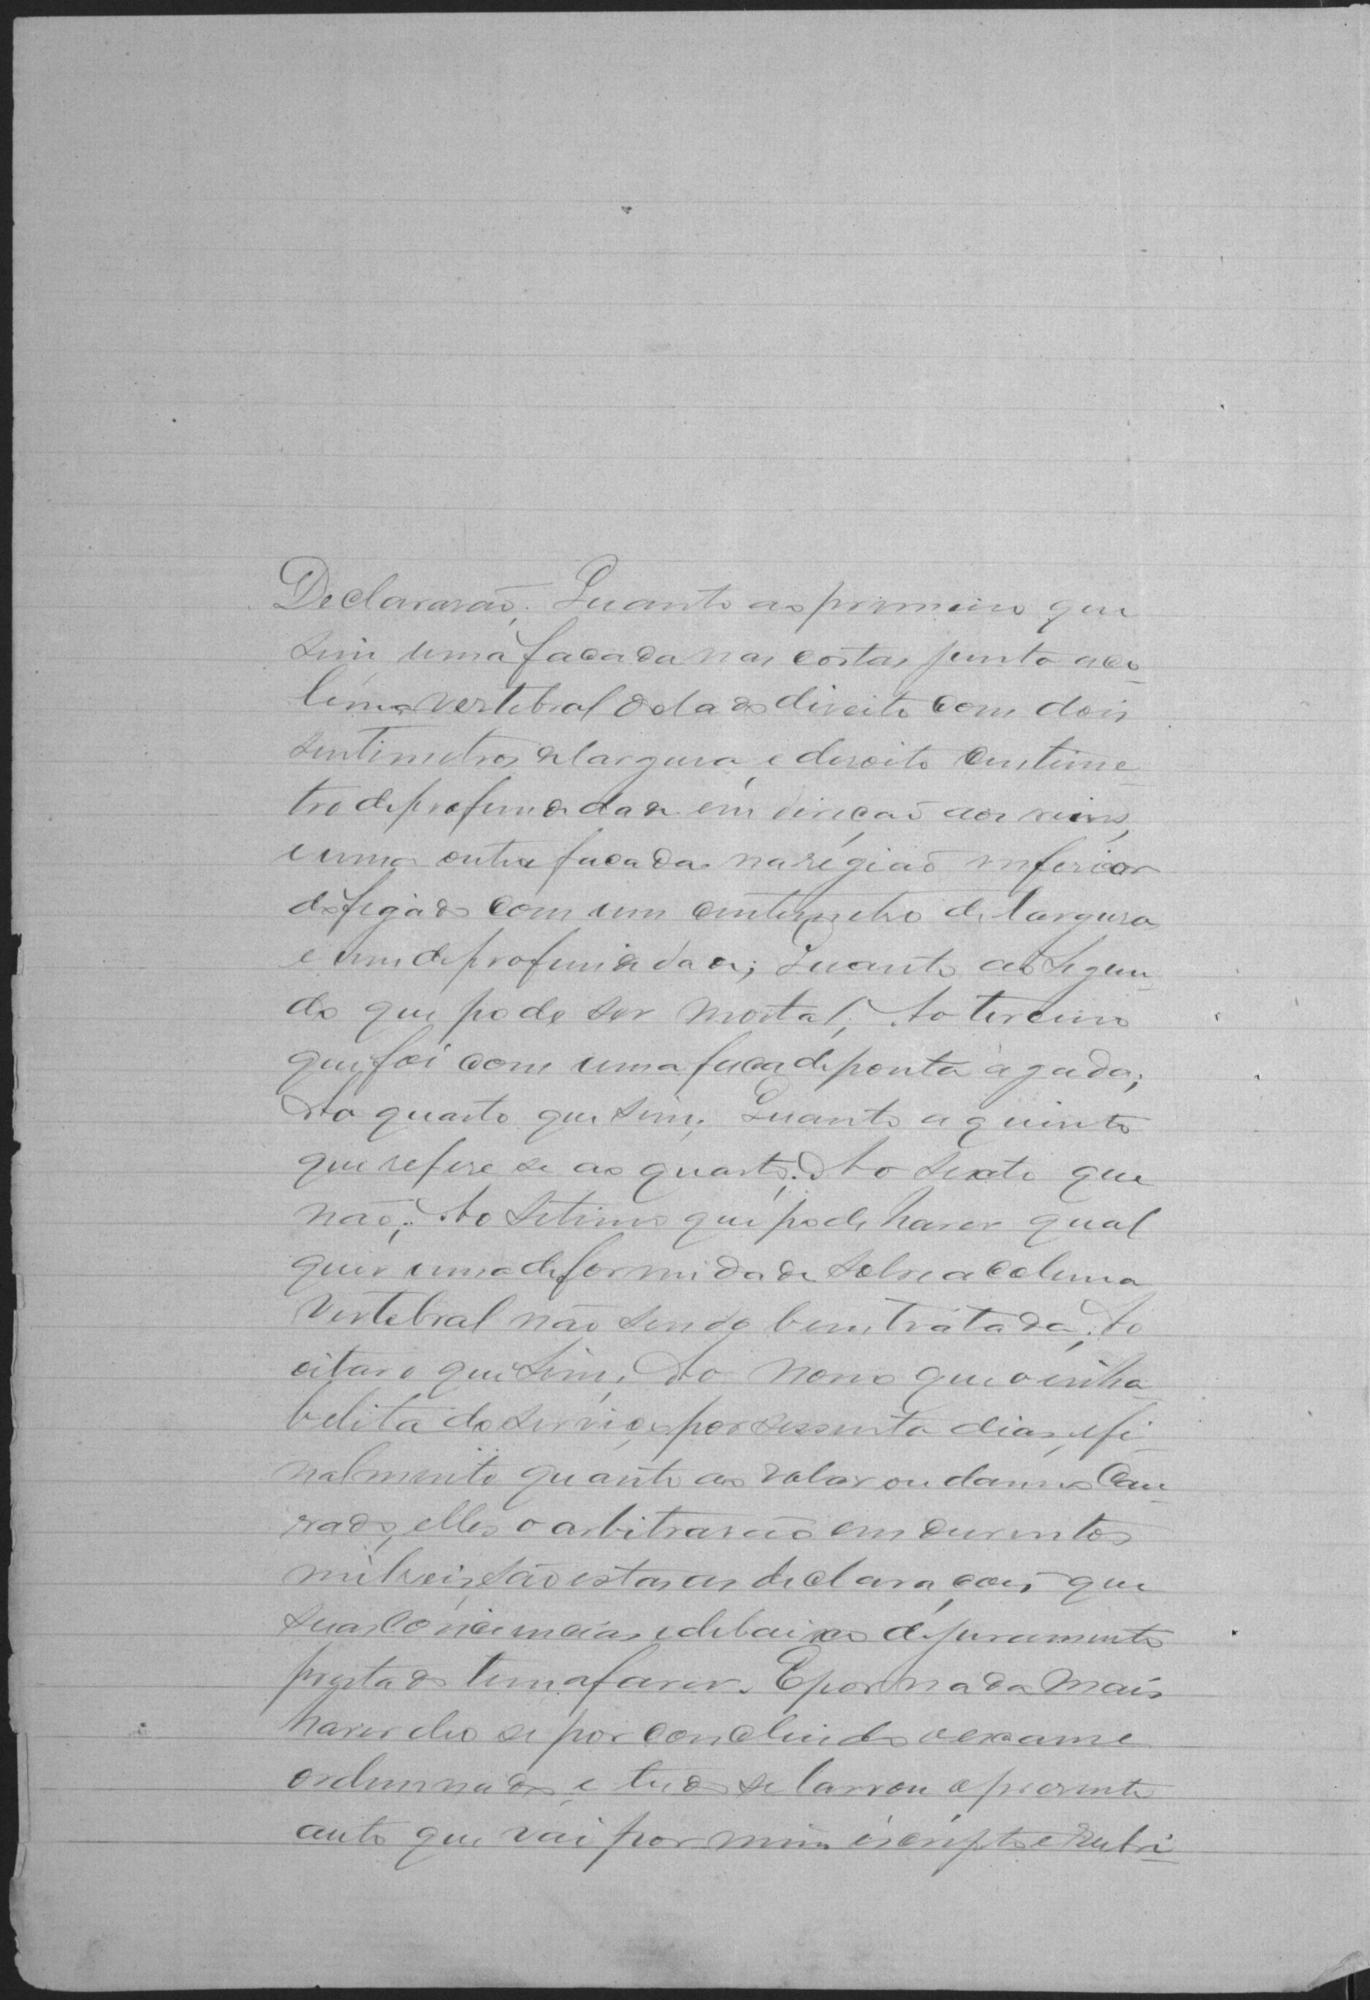 Declararão. Quanto ao primeiro que
sim uma facada nas costas junto a co
luma vertebral do lado direito com dois
sentimetros de largura e desoito centime
tro de profundade em direcão aos reins,
e uma outra facada na região inferior
do figado com um centimetro de largura
e um de profundade; Quanto ao segun
do que pode ser mortal; Ao terceiro
que foi com uma faca de ponta agada;
Ao quarto que sim; Quanto a quinto
que refere se ao quarto; Ao sexto que
não; Ao setimo que pode haver qual
quer uma deformidade sobre a coluna
vertebral não sendo bem tratada; Ao
oitavo que sim; Ao nono que o inha
belita do serviço por sessenta dias, e fi
nalmente quanto ao valor ou damno cau
zado, elles o arbitrarão em duzentos
mil reis, são estas as declaraçoes que
suas conciencias e debaixo de juramento
prestado tem a fazer. E por nada mais
haver deo se por concluido o exame
ordennado, e tudo se lavrou o prezente
auto que vai por mim escripto e rubri